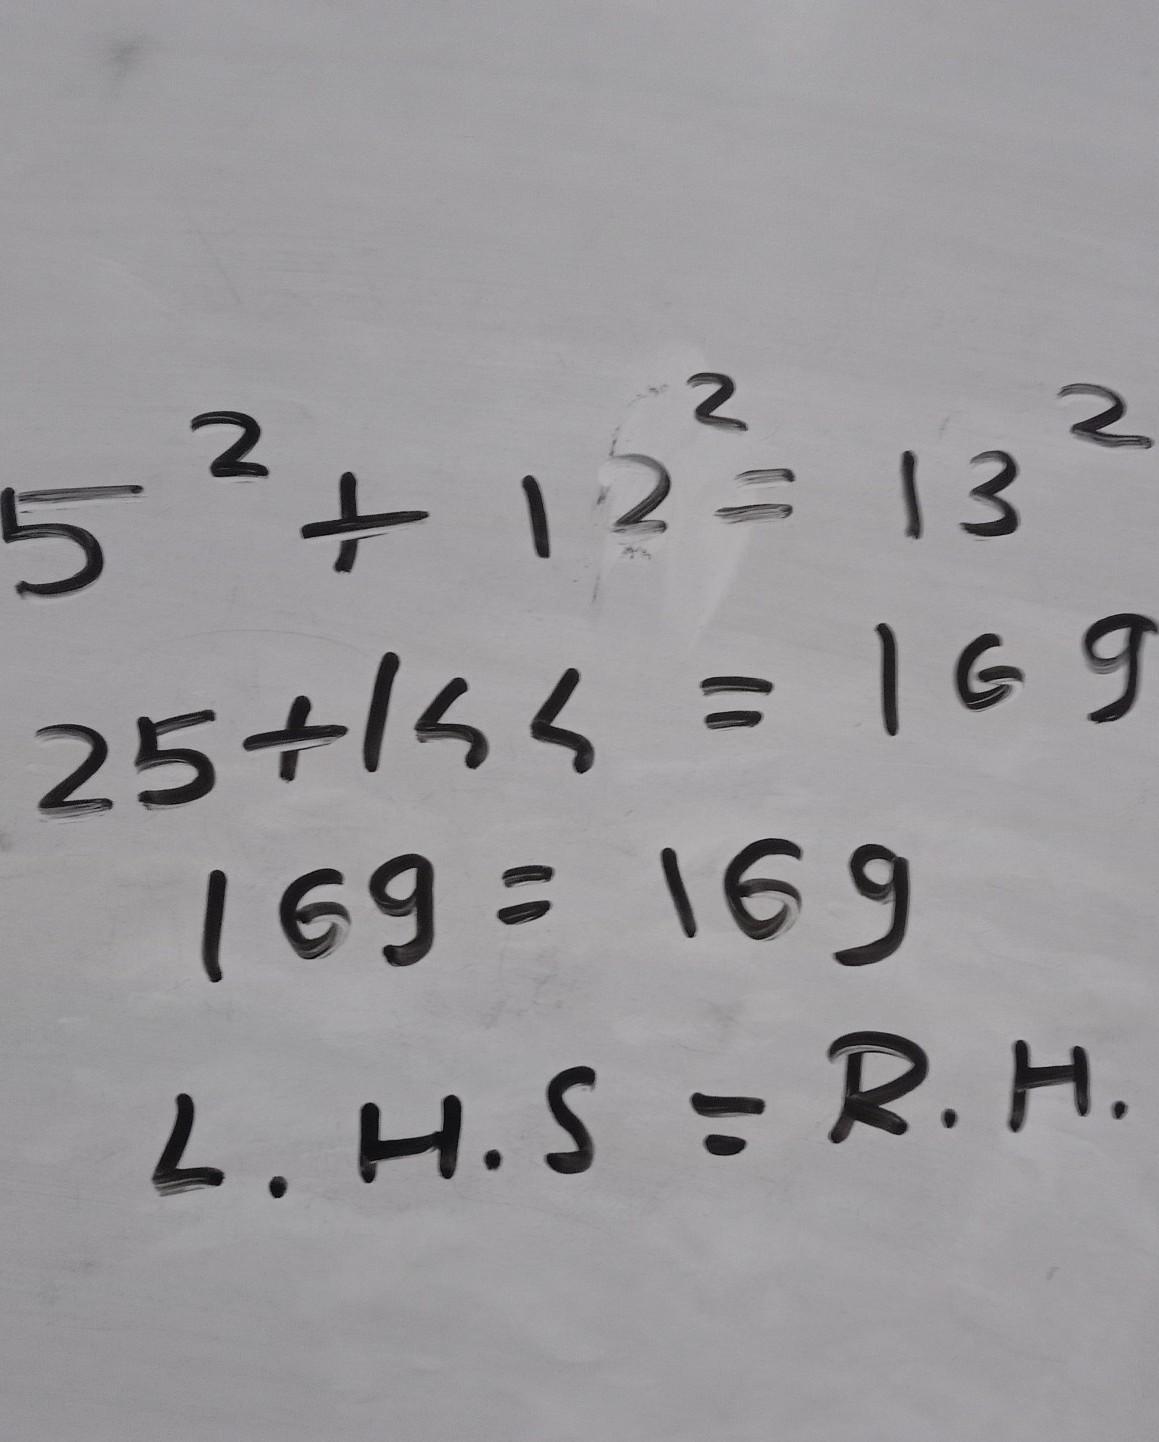 5² + 12² = 13²
25 + 144 = 169
169 = 169
L.H.S = R.H.